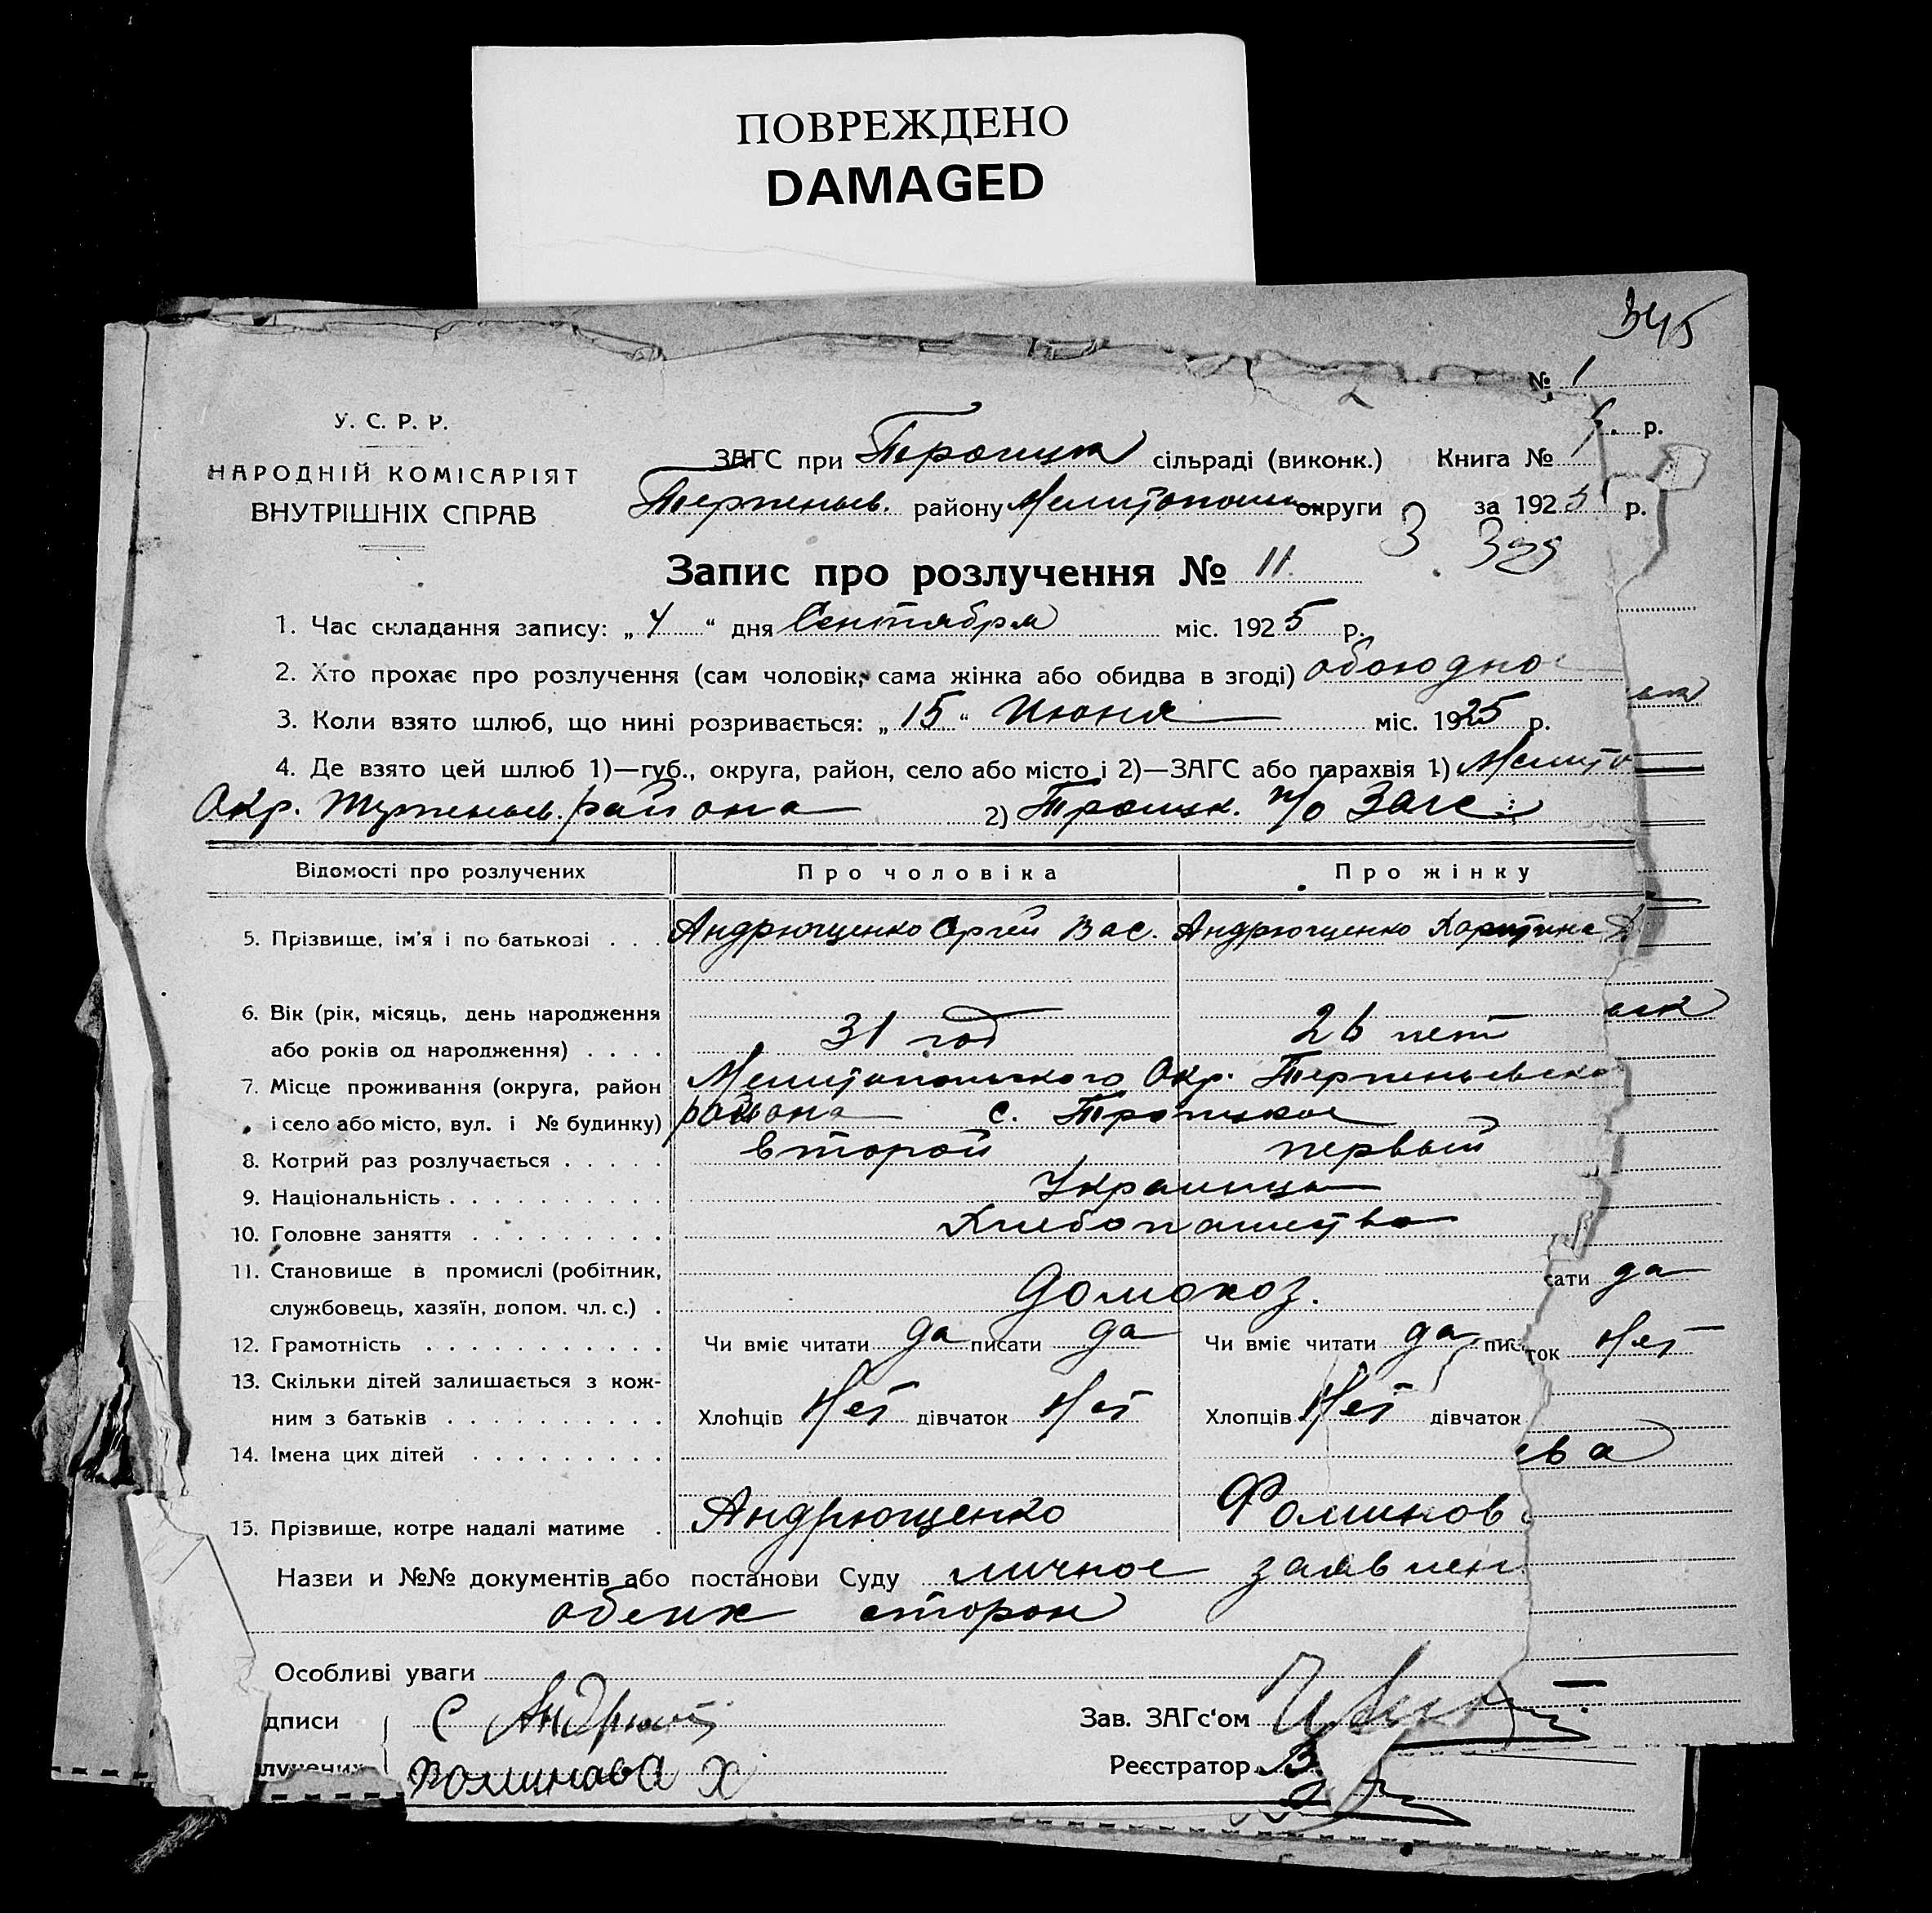 ПОВРЕЖДЕНО
DAMAGED
345
№ 1
р.
У. С. Р. Р.
НАРОДНІЙ КОМІСАРІЯТ
ВНУТРІШНІХ СПРАВ
ЗАГС при Троицк сільраді (виконк.) Книга № 1
Терпеньев. району Мелитополь округи за 1925 р.
3
Запис про розлучення № 11
1. Час складання запису: „4“ дня Сентября міс. 1925 р.
2. Хто прохає про розлучення (сам чоловік, сама жінка або обидва в згоді) обоюдно
3. Коли взято шлюб, що нині розривається: „15“ Июня міс. 1925 р.
4. Де взято цей шлюб 1)—губ., округа, район, село або місто і 2)—ЗАГС або парахвія 1) Мелито
Окр. Терпеньев. района 2) Троицк. п/о Загс
Відомості про розлучених Про чоловіка Про жінку
5. Прізвище, ім'я і по батькові . . . Андрющенко Сргей Вас. Андрющенко Харитина
6. Вік (рік, місяць, день народження
або років од народження) . . . . 31 год 26 лет
7. Місце проживання (округа, район Мелитопольского Окр. Терпеньевско
і село або місто, вул. і № будинку) района с. Троицкое
8. Котрий раз розлучається . . . . . второй первый
9. Національність . . . . . . . . . . Украинцы
10. Головне заняття . . . . . . . . . Хлебопашество
11. Становище в промислі (робітник,
службовець, хазяїн, допом. чл. с.) . домохоз.
сати да
12. Грамотність . . . . . . . . . . . Чи вміє читати да писати да Чи вміє читати да пис
ток Нет
13. Скільки дітей залишається з кож-
ним з батьків . . . . . . . . . . Хлопців Нет дівчаток Нет Хлопців Нет дівчаток
14. Імена цих дітей . . . . . . . . .
ева
15. Прізвище, котре надалі матиме . Андрющенко Фоминов
Назви и №№ документів або постанови Суду личное заявлен
обеих сторон
Особливі уваги
дписи С Андрющ Зав. ЗАГс'ом
лучених Фоминова Х Реєстратор